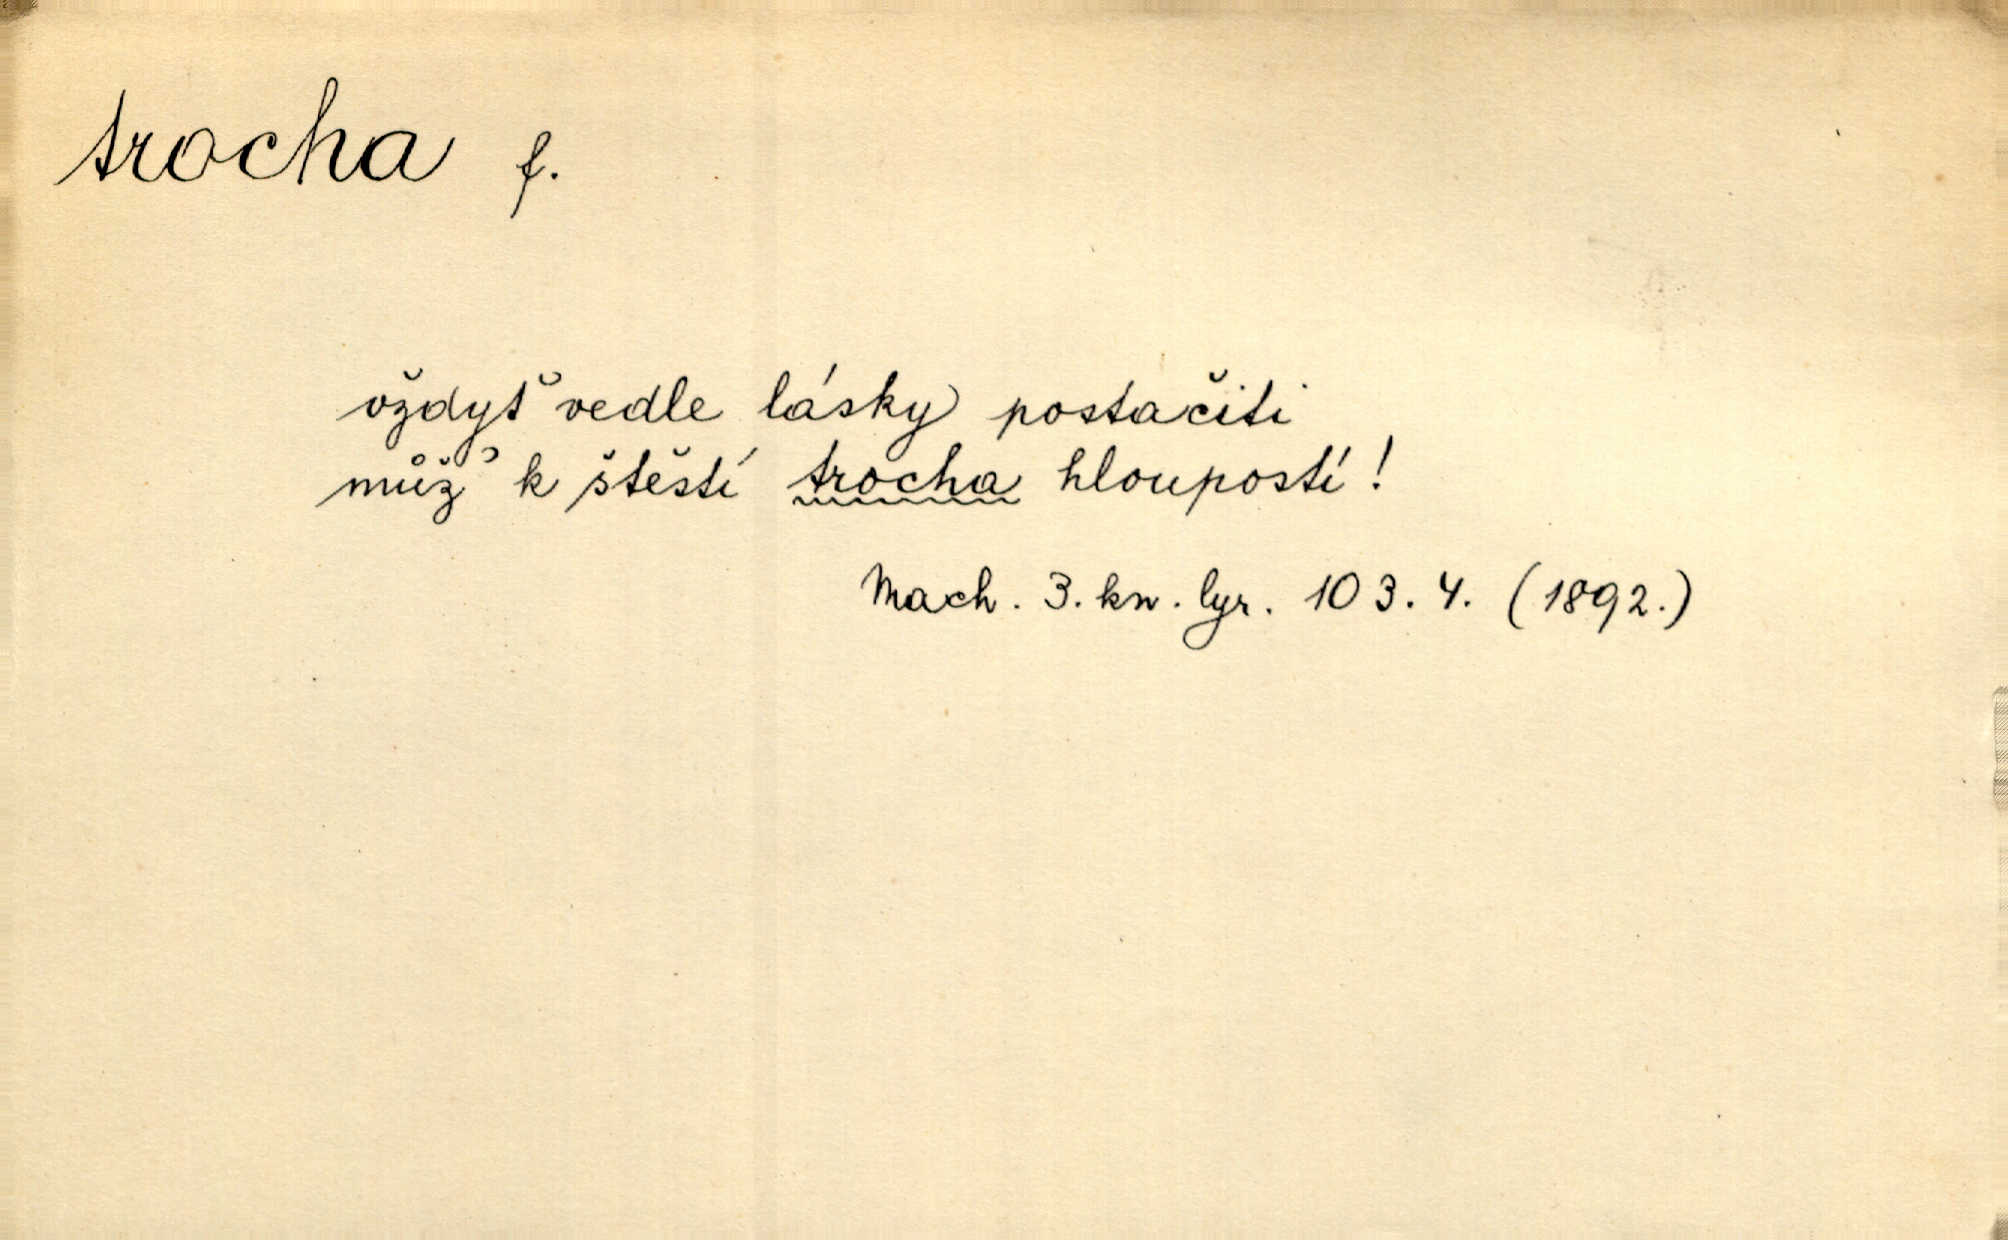 trocha f.
vždyť vedle lásky postačiti
můž' k štěstí trocha hlouposti!
Mach. 3. kn. lyr. 103.4. (1892.)